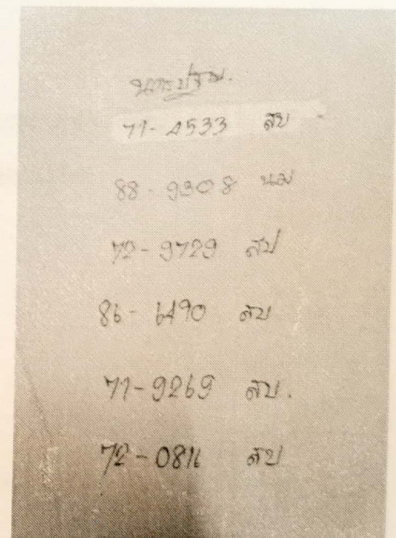 นครปฐม.
71-4533 สบ
88-9308 นม
72-9729 สป
86-6490 สบ
71-9269 สบ.
72-0811 สป